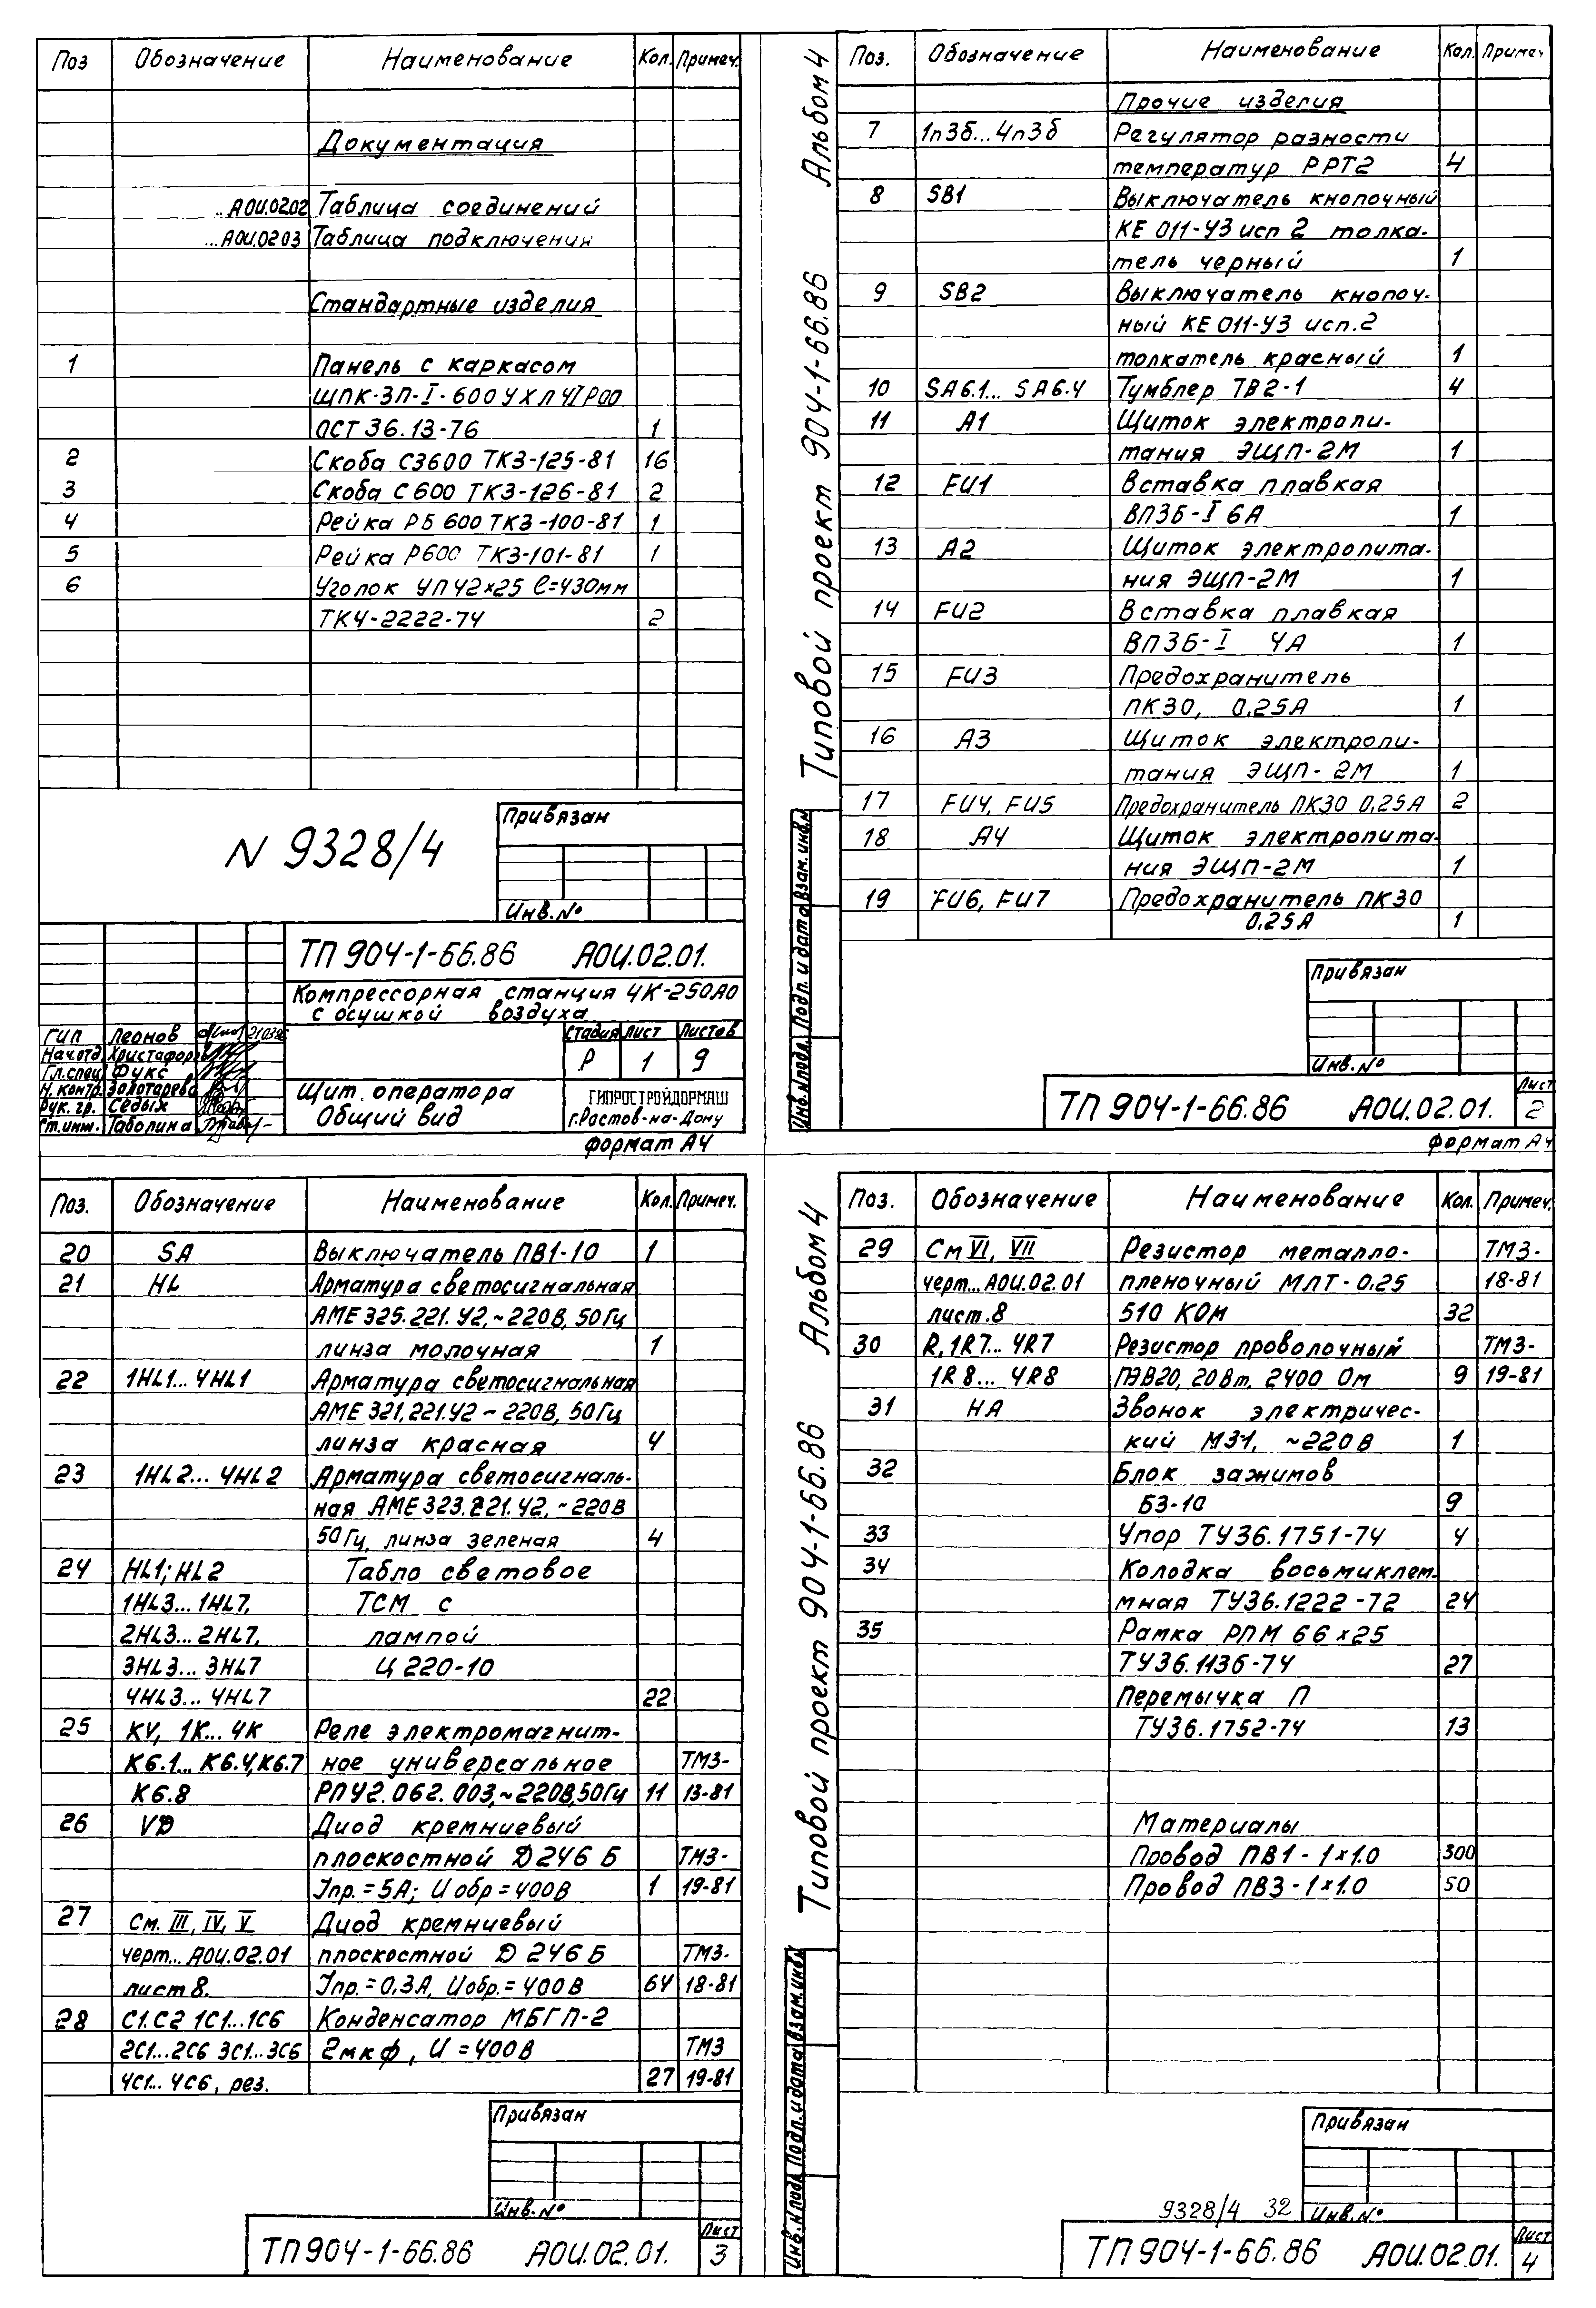 Поз Обозначение Наименование Кол. Примеч.
Документация
..АОИ.02.02 Таблица соединений
...АОИ.02.03 Таблица подключения
Стандартные изделия
1 Панель с каркасом
ЩПК-ЗП-I-600УХЛ4IР00
ОСТ 36.13-76 1
2 Скоба С3600 ТК3-125-81 16
3 Скоба С600 ТК3-126-81 2
4 Рейка РБ600 ТК3-100-81 1
5 Рейка Р600 ТК3-101-81 1
6 Уголок УП42×25 ℓ=430мм
ТК4-2222-74 2
N 9328/4
Привязан
Инв.№
ТП 904-1-66.86 АОИ.02.01.
Компрессорная станция 4К-250А0
с осушкой воздуха
Стадия Лист Листов
Р 1 9
ГИП Леонов
Нач.отд. Христафоров
Гл.спец Фукс
Н.контр. Золотарева
Рук. гр. Седых
Ст.инж. Таболина
Щит оператора
Общий вид
ГИПРОСТРОЙДОРМАШ
г.Ростов-на-Дону
формат А4
Типовой проект 904-1-66.86 Альбом 4
Поз. Обозначение Наименование Кол. Примеч
Прочие изделия
7 1п3б...4п3б Регулятор разности
температур РРТ2 4
8 SB1 Выключатель кнопочный
КЕ 011-У3 исп 2 толка-
тель черный 1
9 SB2 Выключатель кнопоч-
ный КЕ 011-У3 исп.2
толкатель красный 1
10 SA6.1... SA6.4 Тумблер ТВ2-1 4
11 А1 Щиток электропи-
тания ЭЩП-2М 1
12 FU1 Вставка плавкая
ВП3Б-I 6А 1
13 А2 Щиток электропита-
ния ЭЩП-2М 1
14 FU2 Вставка плавкая
ВП3Б-I 4А 1
15 FU3 Предохранитель
ПК30, 0,25А 1
16 А3 Щиток электропи-
тания ЭЩП-2М 1
17 FU4, FU5 Предохранитель ПК30 0,25А 2
18 А4 Щиток электропита-
ния ЭЩП-2М 1
19 FU6, FU7 Предохранитель ПК30
0.25А 1
Инв.№подл. Подп. и дата Взам.инв.№
Привязан
Инв.№
ТП 904-1-66.86 АОИ.02.01. Лист
2
формат А4
Поз. Обозначение Наименование Кол. Примеч.
20 SA Выключатель ПВ1-10 1
21 HL Арматура светосигнальная
АМЕ 325.221.У2,~220В, 50Гц
линза молочная 1
22 1HL1... 4HL1 Арматура светосигнальная
АМЕ 321,221.У2 ~ 220В, 50Гц
линза красная 4
23 1HL2... 4HL2 Арматура светосигналь-
ная АМЕ 323.221.У2, ~220В
50Гц, линза зеленая 4
24 HL1; HL2 Табло световое
1HL3... 1HL7, ТСМ с
2HL3... 2HL7, лампой
3HL3... 3HL7 Ц 220-10
4HL3... 4HL7 22
25 KV, 1К... 4К Реле электромагнит-
К6.1... К6.4, К6.7 ное универсальное ТМ3-
К6.8 РПУ2.062.003,~220В,50Гц 11 13-81
26 VD Диод кремниевый
плоскостной Д 246 Б ТМ3-
Iпр.=5А; Uобр=400В 1 19-81
27 См. III, IV, V Диод кремниевый
черт... АОИ.02.01 плоскостной Д 246 Б ТМ3-
лист 8. Iпр.=0,3А, Uобр.=400В 64 18-81
28 С1.С2 1С1...1С6 Конденсатор МБГП-2
2С1...2С6 3С1...3С6 2мкф, U=400В ТМ3
4С1... 4С6, рез. 27 19-81
Привязан
Инв.№
ТП 904-1-66.86 АОИ.02.01. Лист
3
Типовой проект 904-1-66.86 Альбом 4
Поз. Обозначение Наименование Кол. Примеч.
29 См VI, VII Резистор металло- ТМ3-
черт... АОИ.02.01 пленочный МЛТ-0.25 18-81
лист.8 510 КОм 32
30 R, 1R7... 4R7 Резистор проволочный ТМ3-
1R8... 4R8 ПЭВ20, 20Вт, 2400 Ом 9 19-81
31 НА Звонок электричес-
кий МЗ1, ~220В 1
32 Блок зажимов
БЗ-10 9
33 Упор ТУ36.1751-74 4
34 Колодка восьмиклем-
мная ТУ36.1222-72 24
35 Рамка РПМ 66×25
ТУ36.1136-74 27
Перемычка П
ТУ36.1752-74 13
Материалы
Провод ПВ1-1×1.0 300
Провод ПВ3-1×1.0 50
Инв.№подл. Подп. и дата Взам.инв№
Привязан
9328/4 32 Инв.№
ТП 904-1-66.86 АОИ.02.01. Лист
4